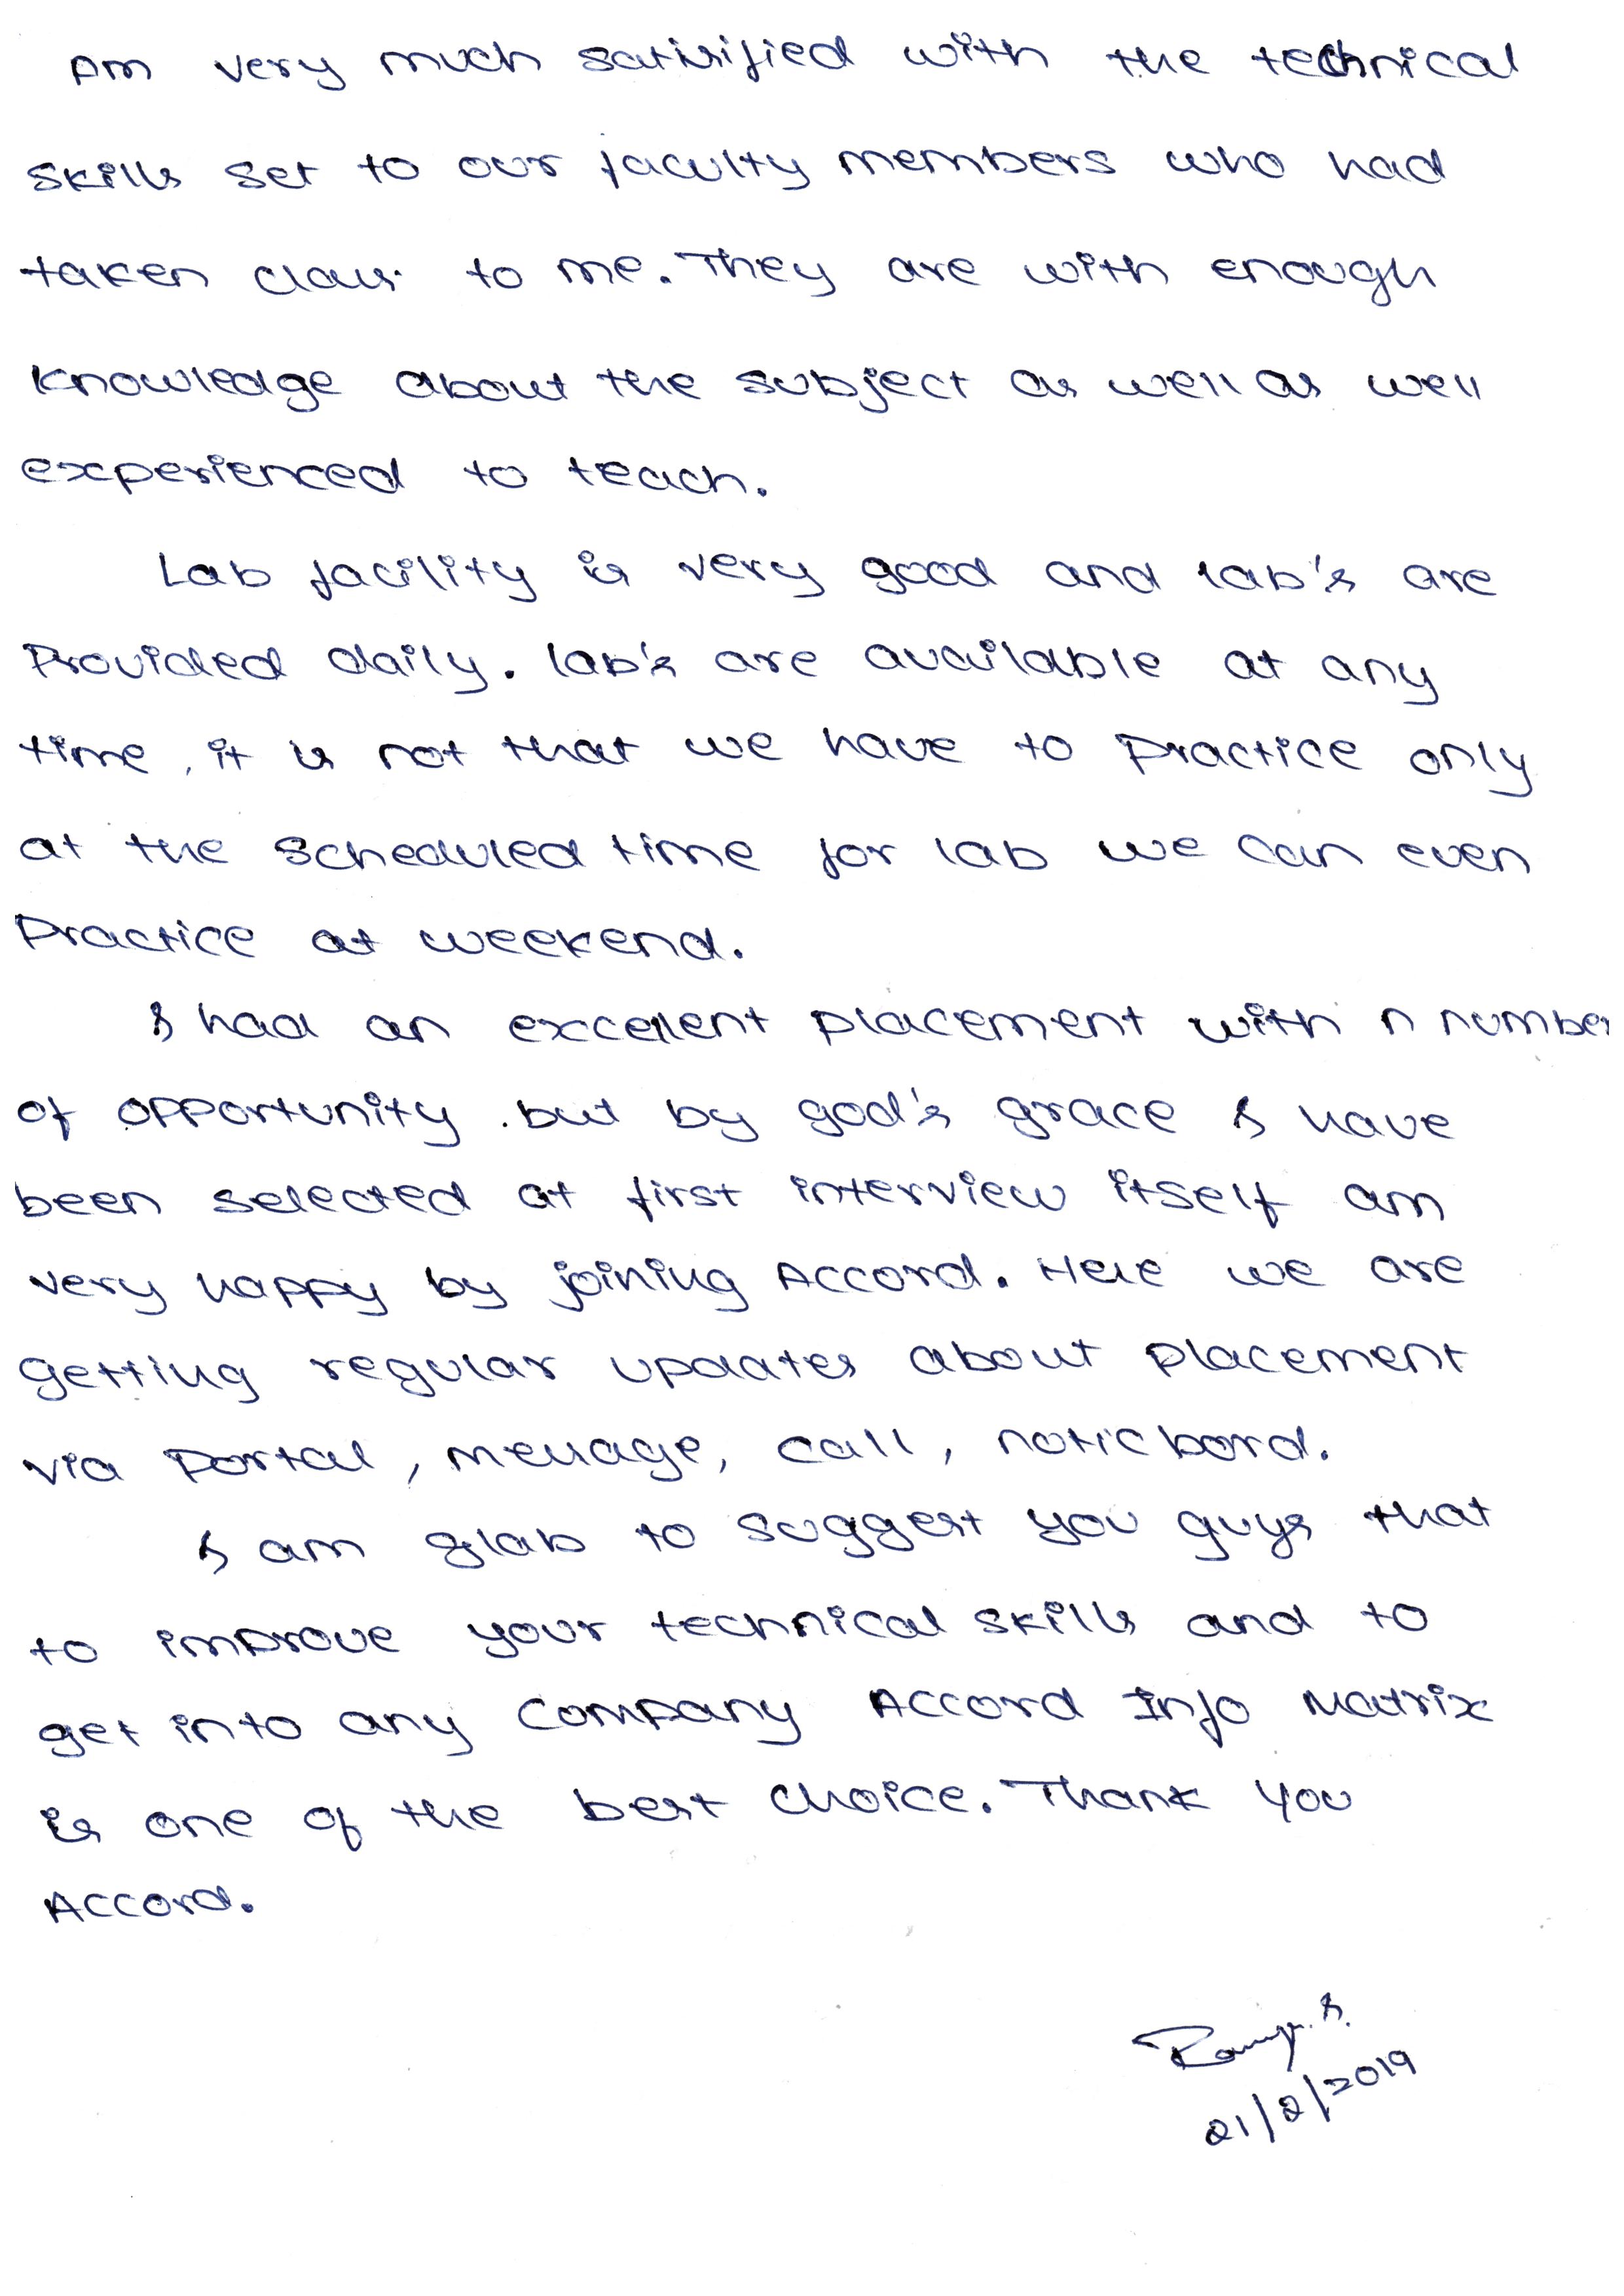 Am very much satisified with the technical
skills set to our faculty members who had
taken class to me. They are with enough
knowledge about the subject as well as well
experienced to teach.
Lab facility is very good and lab's are
Provided daily. lab's are available at any
time, it is not that we have to Practice only
at the scheduled time for lab we can even
Practice at weekend.
I had an excellent placement with n number
of opportunity. but by god's grace I have
been selected at first interview itself am
very happy by joining Accord. Here we are
getting regular updates about placement
via Portal, message, call, noticbord.
I am glab to suggest you guys that
to improve your technical skills and to
get into any company Accord Info Matrix
is one of the best choice. Thank You
Accord.
21/2/2019